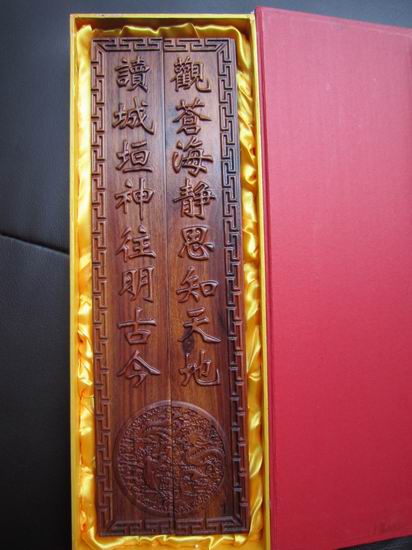 觀蒼海静思知天地
讀城垣神往明古今